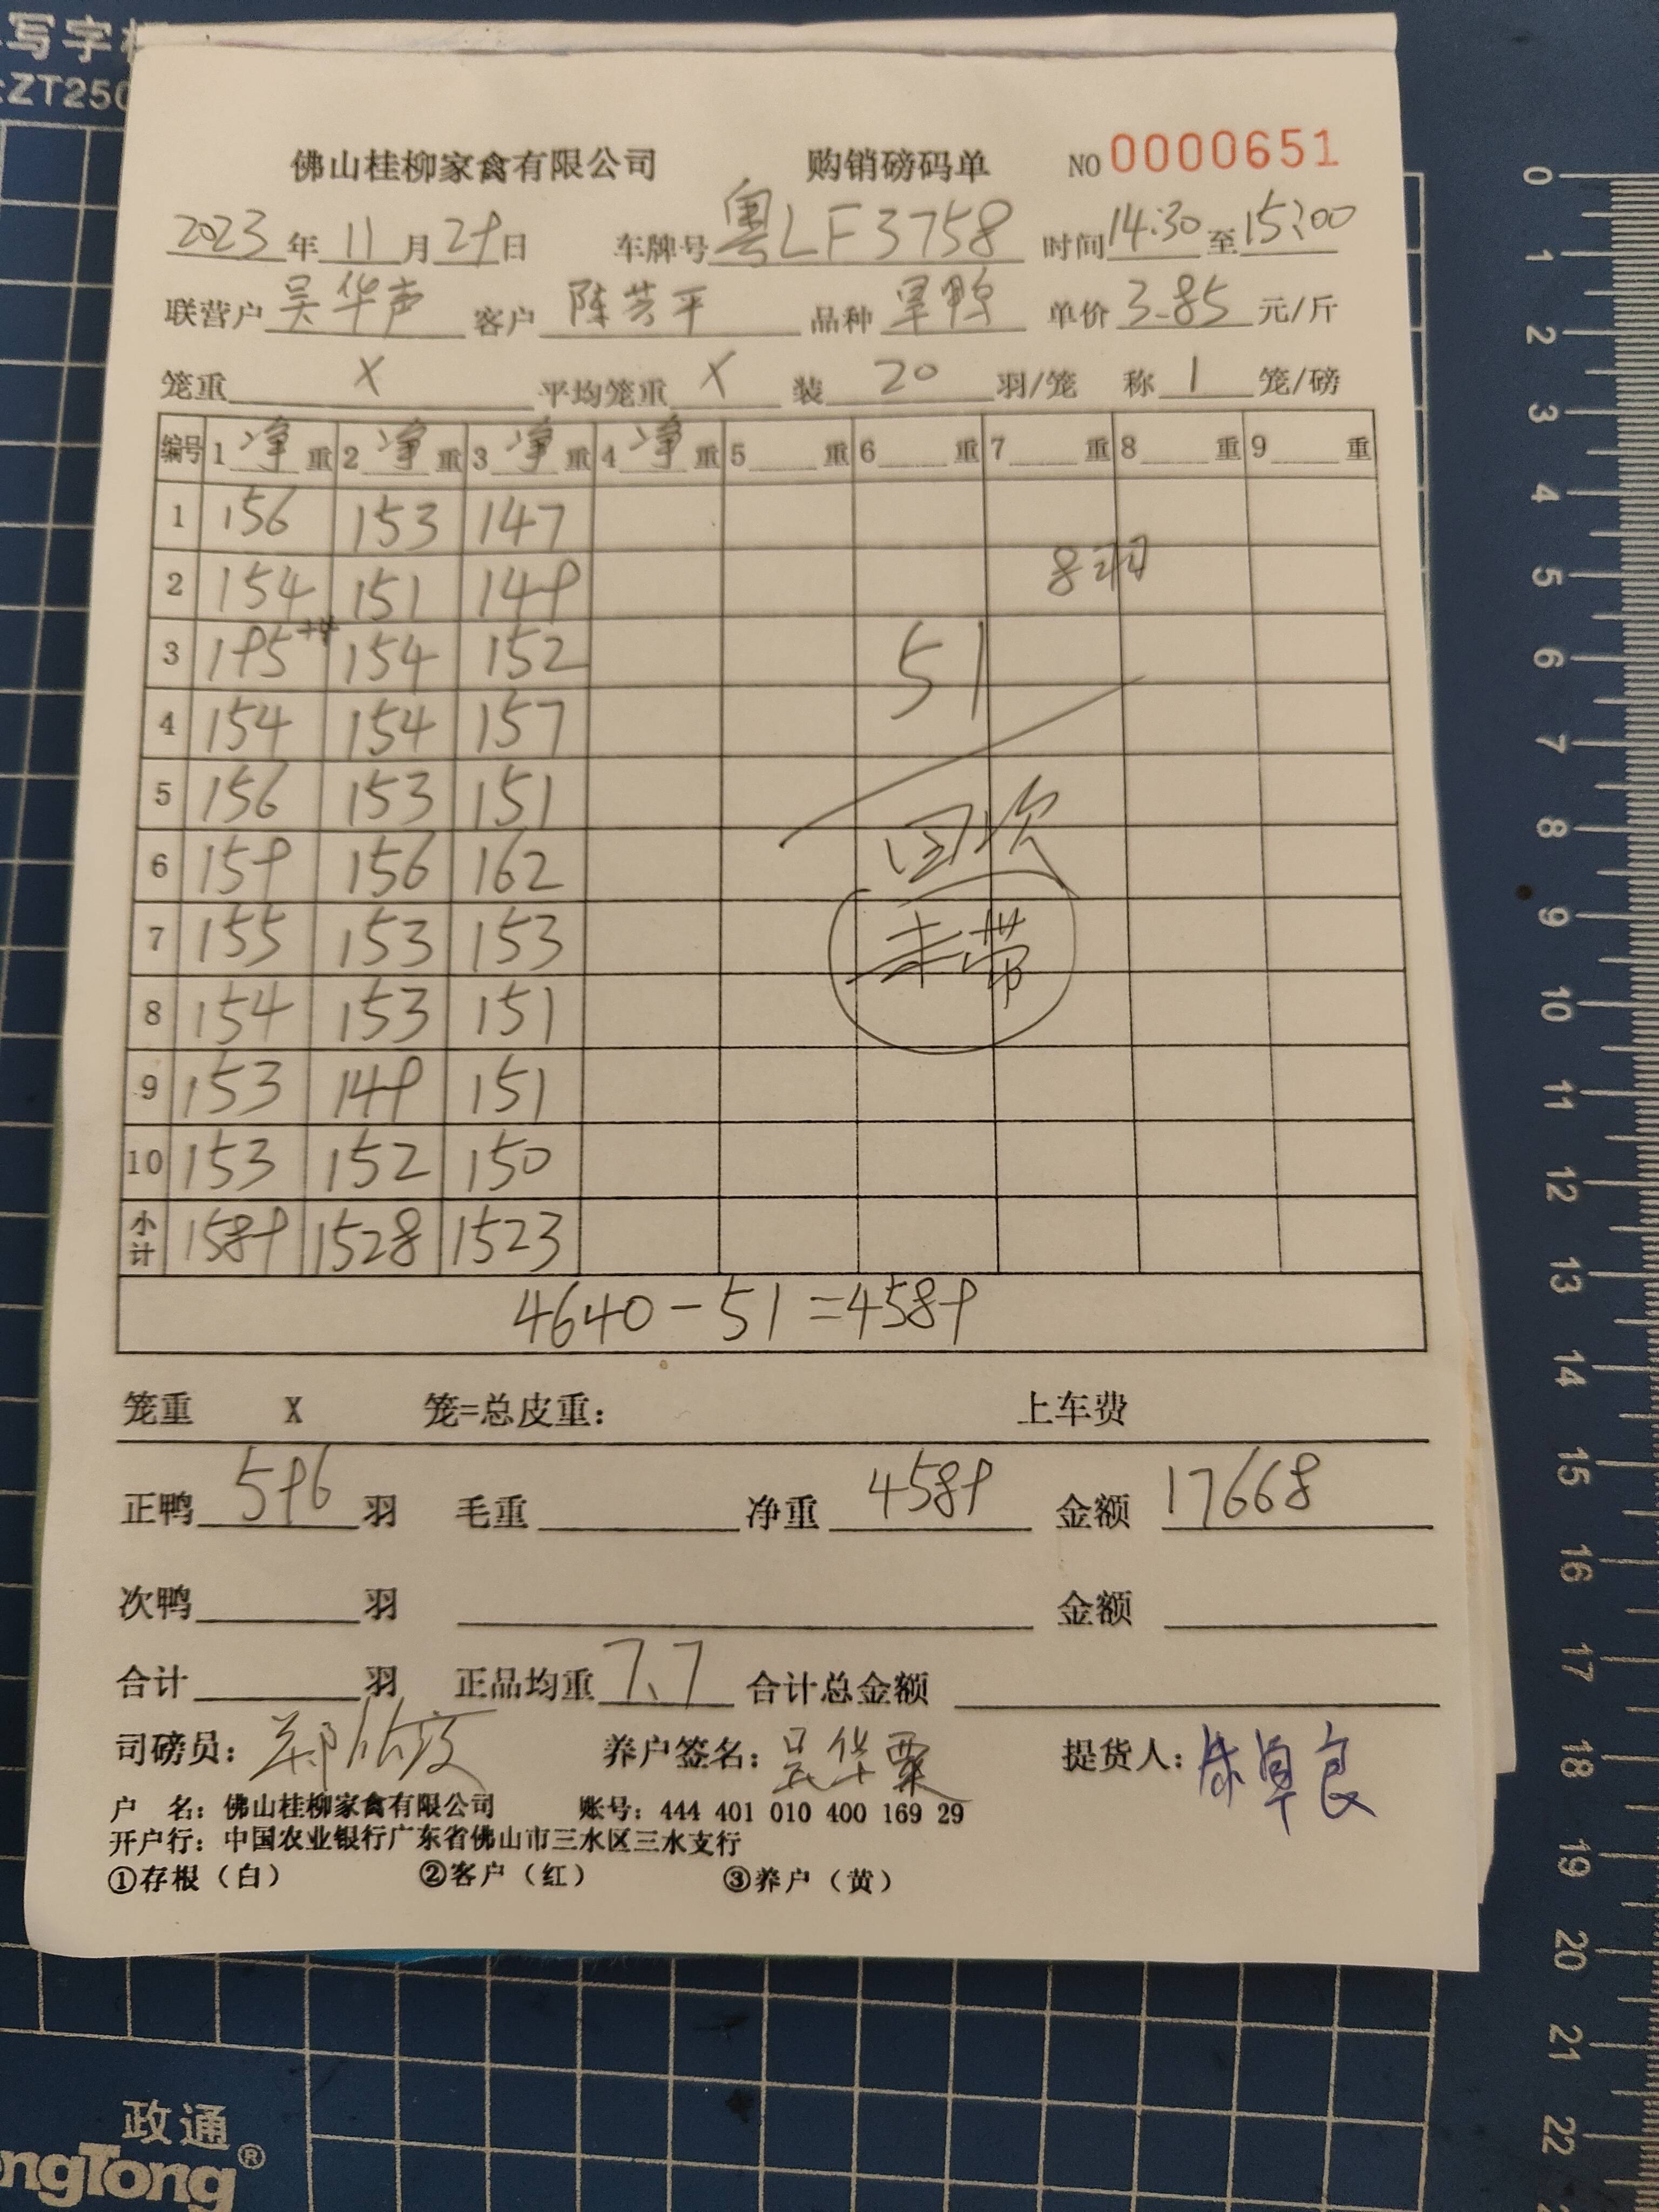 写字
ZT250
佛山桂柳家禽有限公司 购销磅码单 NO 0000651
2023年11月29日 车牌号粤LF3758 时间14:30至15:00
联营户吴华声 客户陈芳平 品种旱鸭 单价3.85元/斤
笼重X 平均笼重X 装20羽/笼 称1笼/磅
编号 1净重 2净重 3净重 4净重 5重 6重 7重 8重 9重
1 156 153 147
2 154 151 149 8羽
3 195+4 154 152 51
4 154 154 157
5 156 153 151
6 159 156 162 回次
7 155 153 153 未带
8 154 153 151
9 153 149 151
10 153 152 150
小计 1589 1528 1523
4640-51=4589
笼重 X 笼=总皮重： 上车费
正鸭596羽 毛重 净重4589 金额17668
次鸭 羽 金额
合计 羽 正品均重7.7 合计总金额
司磅员： 养户签名：吴华粟 提货人：朱卓良
户 名：佛山桂柳家禽有限公司 账号：444 401 010 400 169 29
开户行：中国农业银行广东省佛山市三水区三水支行
①存根（白） ②客户（红） ③养户（黄）
0 1 2 3 4 5 6 7 8 9 10 11 12 13 14 15 16 17 18 19 20 21 22
政通®
ngTong